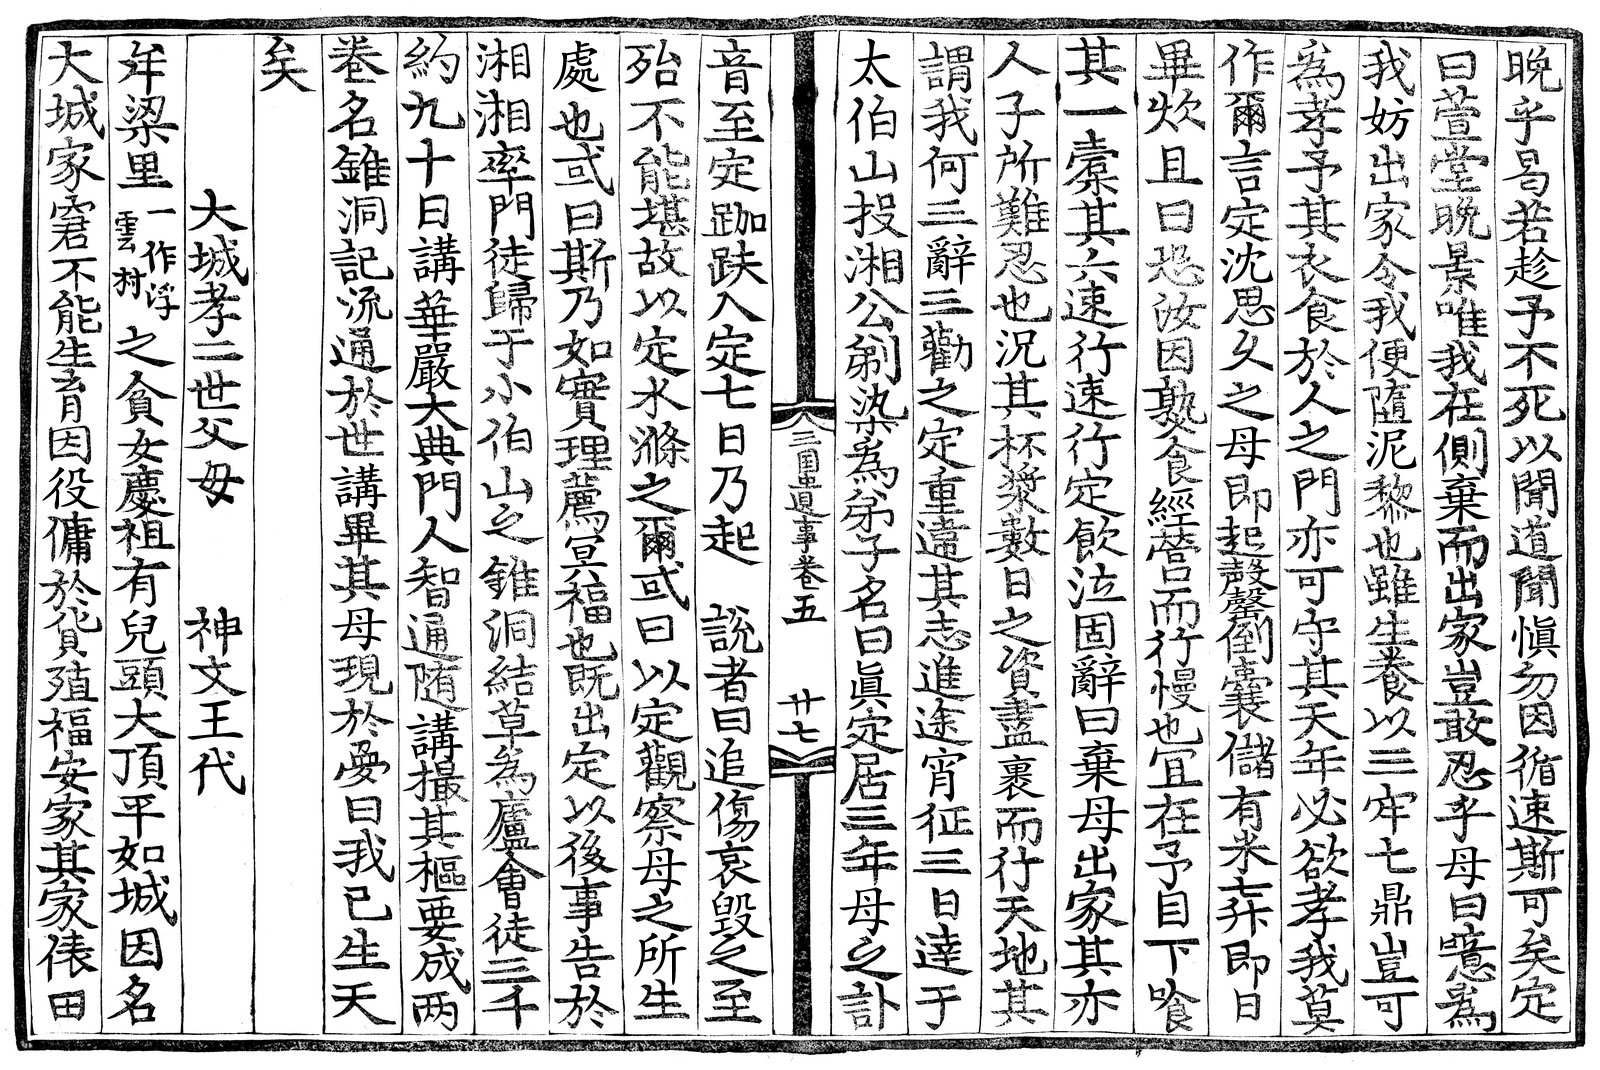 晩乎曷若趁予不死以聞道聞愼勿因循速斯可矣定
曰萱堂晩景唯我在側棄而出家豈敢忍乎母曰噫爲
我妨出家令我便墮泥黎也雖生養以三牢七鼎豈可
爲孝予其衣食於人之門亦可守其天年必欲孝我莫
作爾言定沈思久之母即起罄倒囊儲有米七升即日
畢炊且曰恐汝因熟食經營而行慢也冝在予目下喰
其一橐其六速行速行定飮泣固辭曰棄母出家其亦
人子所難忍也況其杯漿數日之資盡裹而行天地其
謂我何三辭三勸之定重違其志進途宵征三日達于
太伯山投湘公剃染爲弟子名曰眞定居三年母之訃
三囯遺事卷五
廿七
音至定跏趺入定七日乃起 說者曰追傷哀毀之至
殆不能堪故以定水滌之爾或曰以定觀察母之所生
處也或曰斯乃如實理薦冥福也既出定以後事告於
湘湘率門徒歸于小伯山之錐洞結草爲廬會徒三千
約九十日講華嚴大典門人智通随講撮其樞要成两
卷名錐洞記流通於世講畢其母現於夢曰我已生天
矣
大城孝二世父母 神文王代
牟梁里一作浮雲村之貧女慶祖有兒頭大頂平如城因名
大城家窘不能生育因役傭於貨殖福安家其家俵田